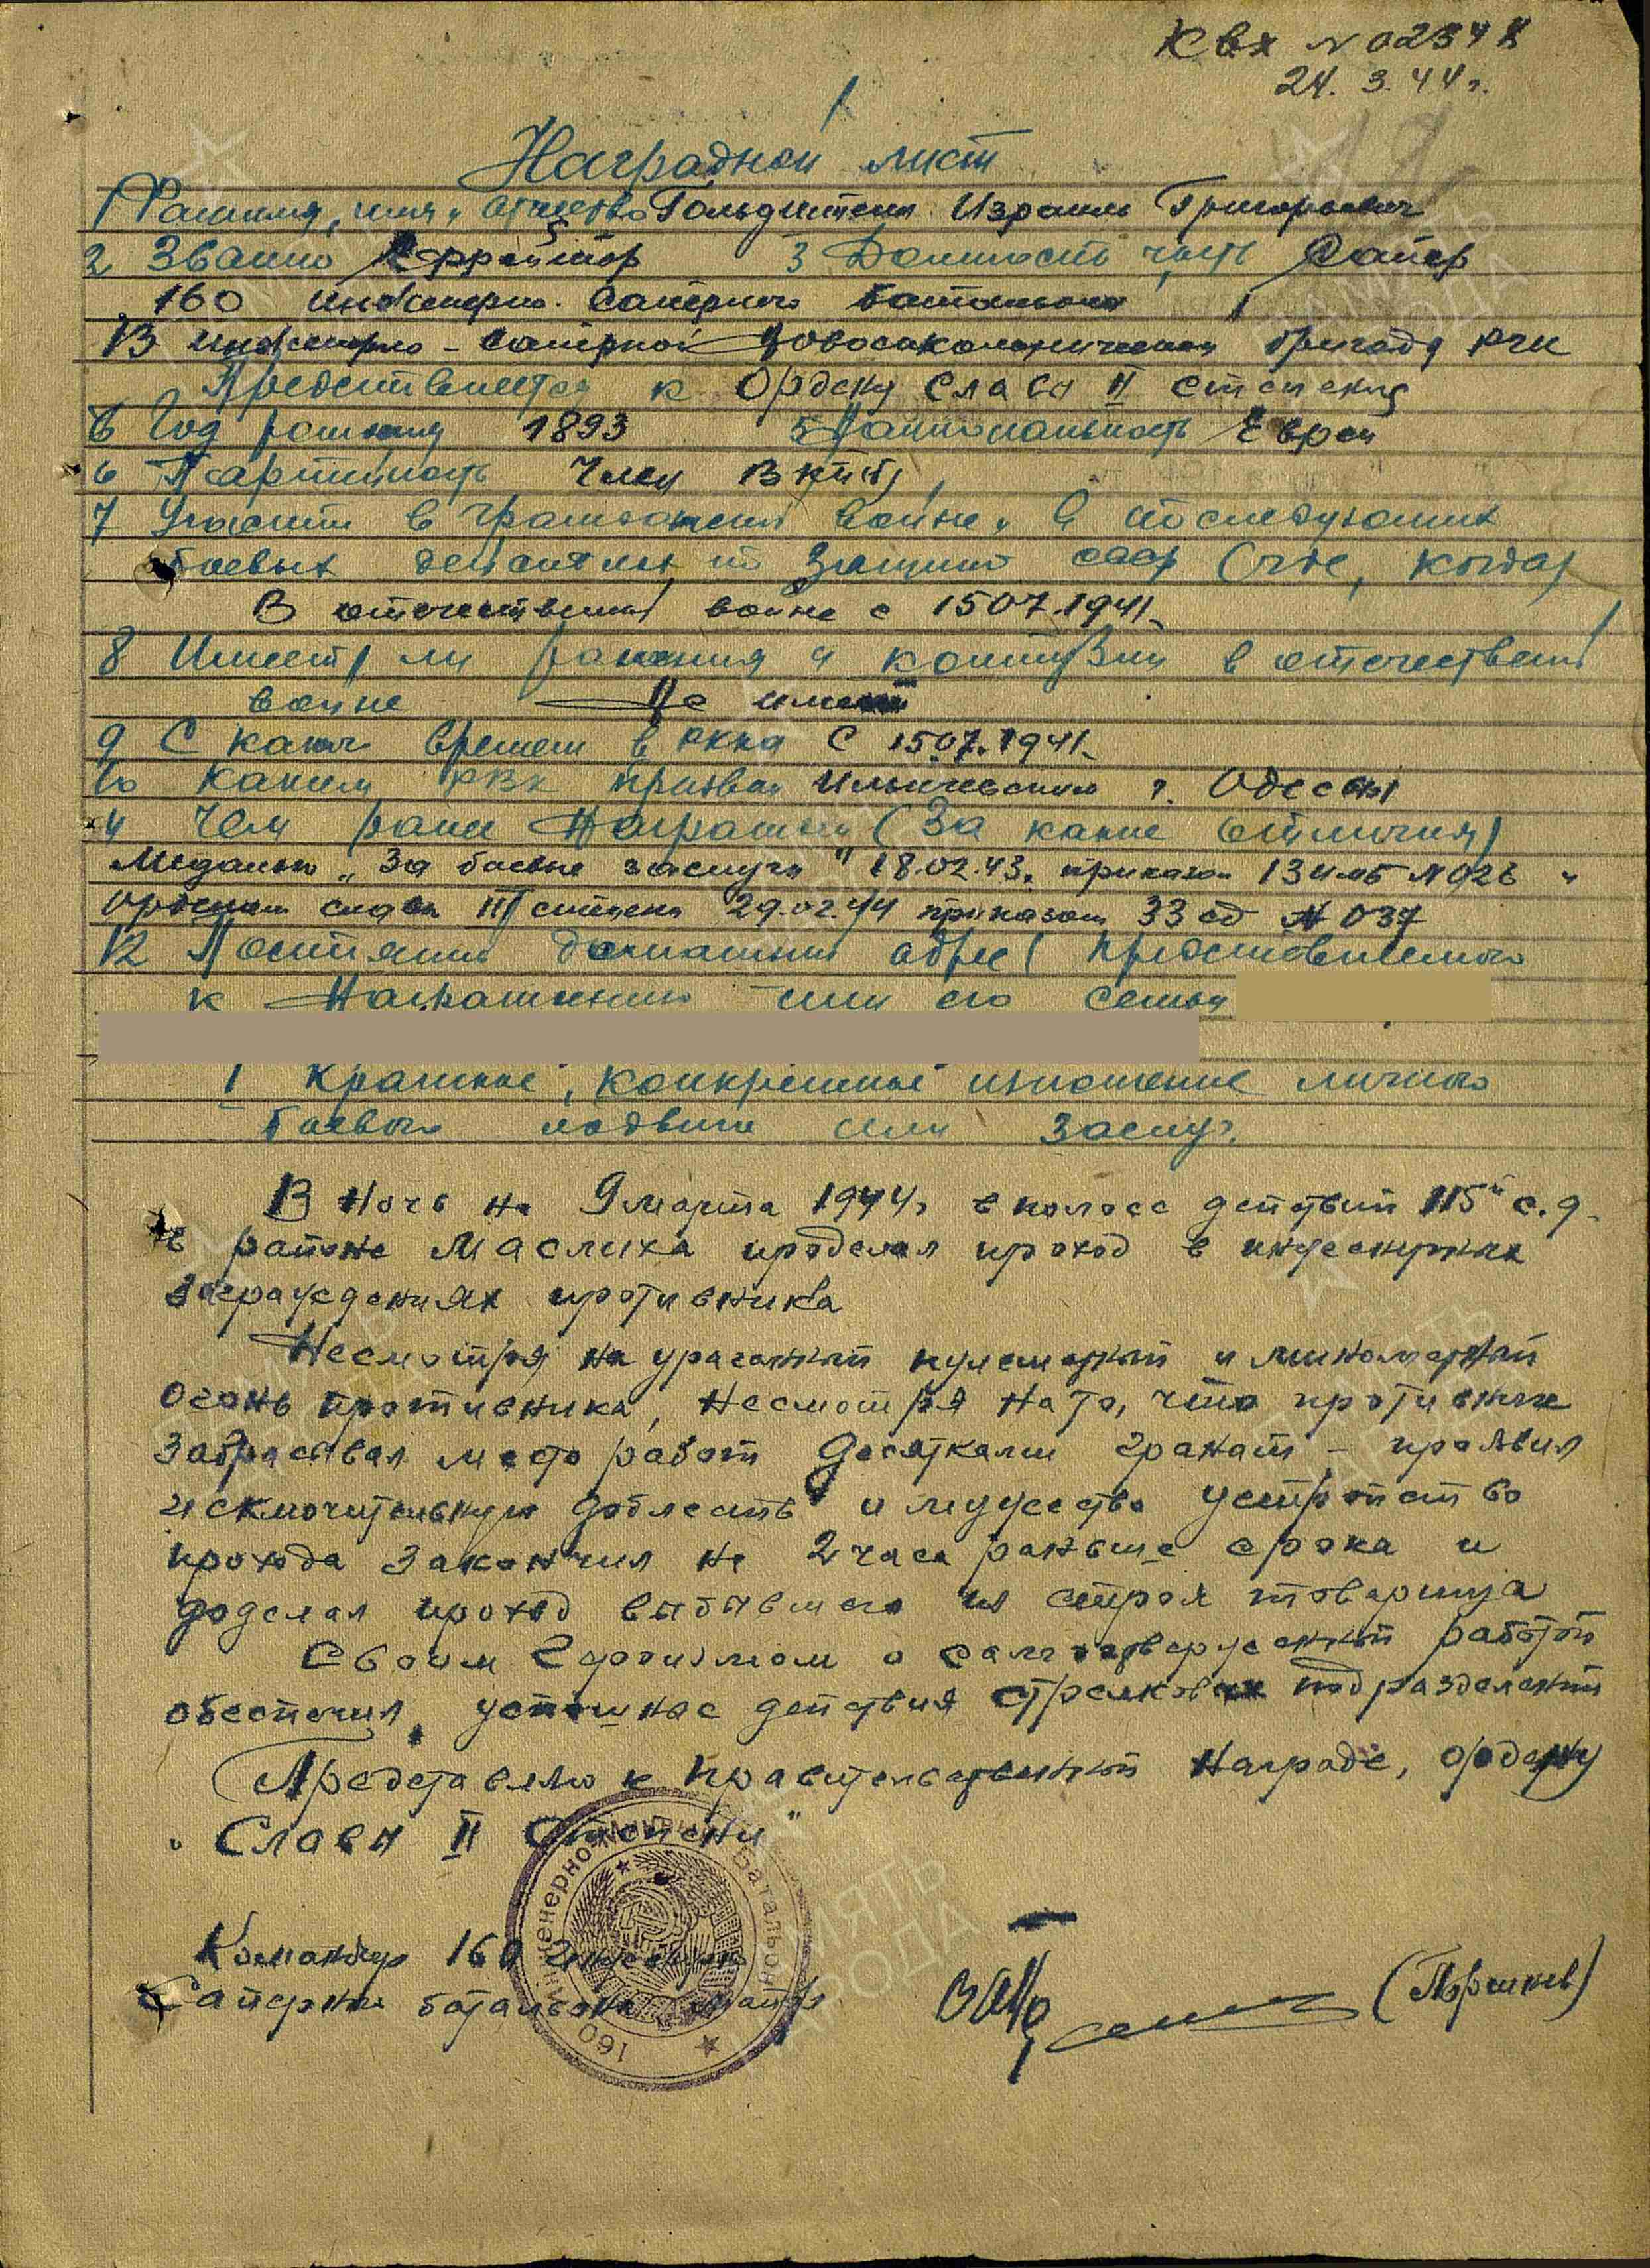 К вх № 02348
24. 3. 44 г.
Наградной лист
1 Фамилия, имя и отчество Гольдштеин Израиль Григорьевич
2 Звание Ефрейтор 3 Должность часть Сапер
160 инженерно-саперного батальона
13 инженерно-саперной Новосокольнической бригады РГК
Представляется к Ордену Слава II степени
4 Год рождения 1893 5 Национальность Еврей
6 Партийность Член ВКП(б)
7 Участие в гражданской войне и последующих
боевых действиях по защите СССР (где, когда)
В отечественной войне с 15 07 1941
8 Имеет ли ранения и контузии в отечественной
войне Не имеет
9 С каких времен в РККА с 15.07.1941
10 Каким РВК призван Ильичевским г. Одессы
11 Чем ранее награжден (за какие отличия)
Медалью „За боевые заслуги" 18.02.43. приказом 13 № 026 и
Орденом слава III степени 29.02.44 приказом 33 сд № 037
12 Постоянный домашний адрес представляемого
к награждению или его семьи
1 Краткое, конкретное изложение личного
боевого подвига или заслуг.
В ночь на 9 марта 1944 г в полосе действий 115й с.д.
в районе Маслиха проделал проход в инженерных
заграждениях противника
Несмотря на ураганный пулеметный и минометный
огонь противника, несмотря на то, что противник
забрасывал место работ десятками гранат - проявил
исключительную доблесть и мужество устройство
прохода закончил на 2 часа раньше срока и
доделал проход выбывшего из строя товарища
Своим героизмом и самоотверженной работой
обеспечил успешные действия стрелковых подразделений
Представляю к правительственной награде, ордену
„Слава II степени"
Командир 160 инженерно
саперного батальона майор (Поршнев)
160 Инженерно-Минный Батальон
ПАМЯТЬ НАРОДА